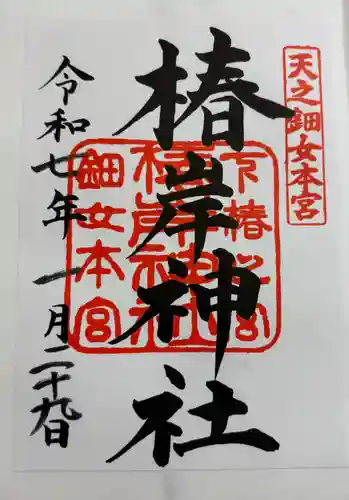 天之鈿女本宮
椿岸神社
下椿
椿岸神社
鈿女本宮
令和七年 一月二十九日